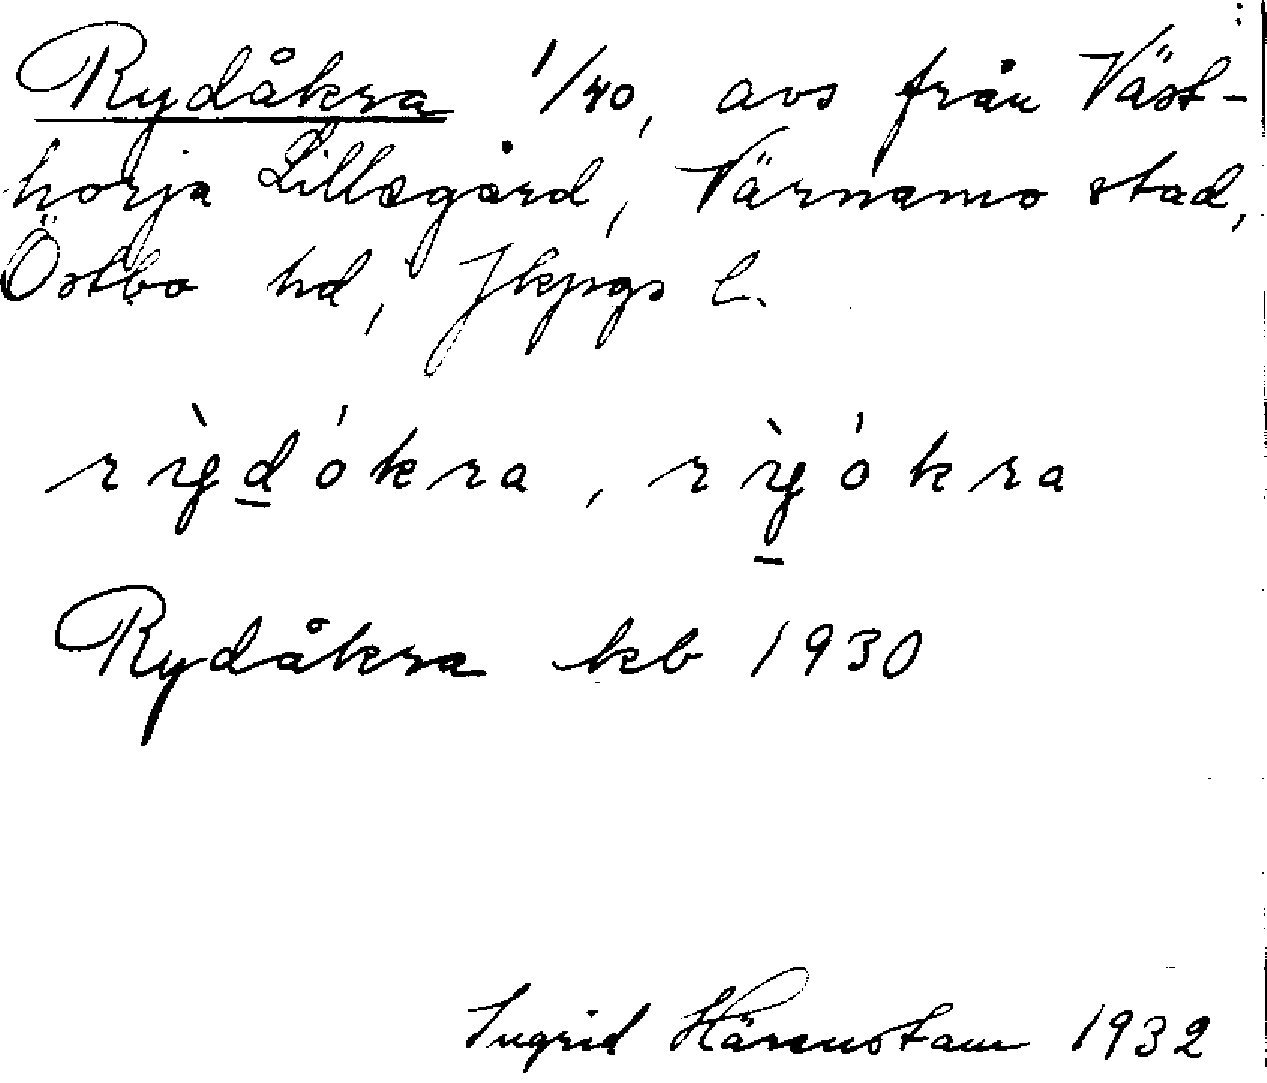 Rydåkra 1/40, avs från Väst-
horja Lillegård, Värnamo stad,
Östbo hd, Jkpgs l.
rỳdókra, rỳókra
Rydåkra kb 1930
Ingrid Härenstam 1932